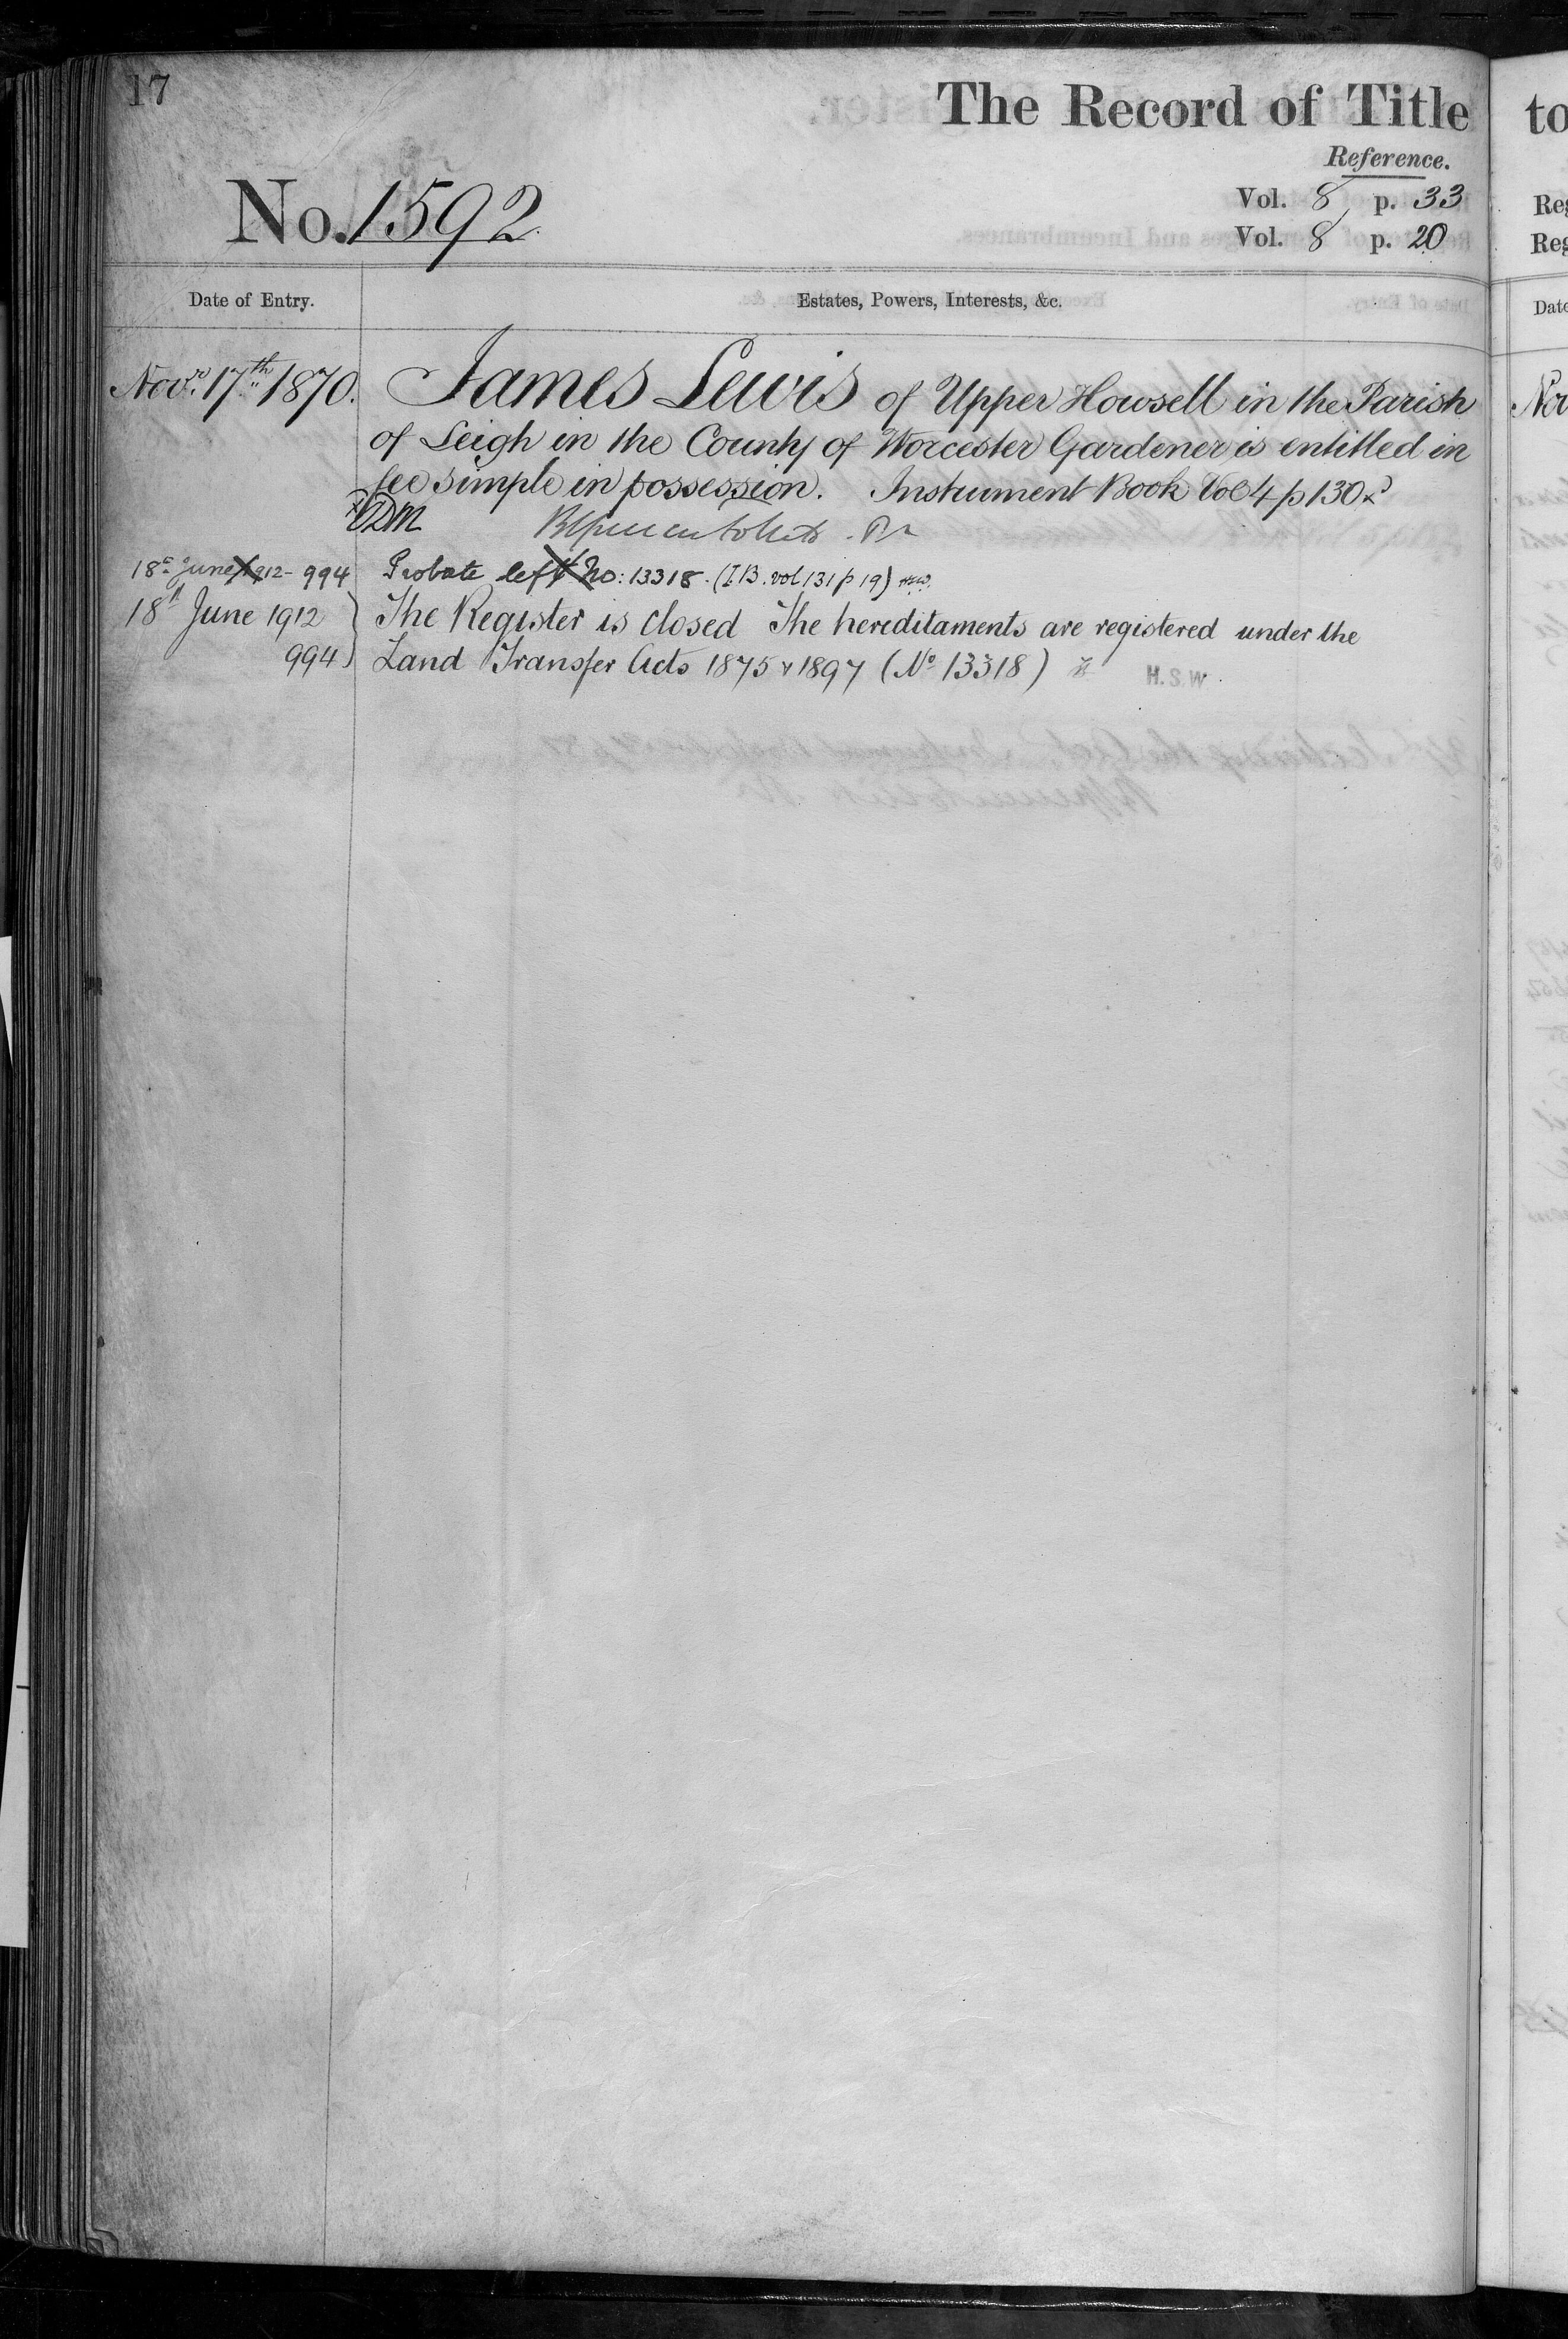 17
The Record of Title
Reference.
No. 1592
Vol. 8 p. 33
Vol. 8 p. 20
Date of Entry.
Estates, Powers, Interests, &c.
Novr. 17th 1870.
James Lewis of Upper Howsell in the Parish
of Leigh in the County of Worcester Gardener is entitled in
fee simple in possession. Instrument Book Vol 4 p 130
18th June 1912 - 994
Probate left No: 13318. (I.B. vol 131 p 19)
18th June 1912
994
The Register is closed The hereditaments are registered under the
Land Transfer Acts 1875 & 1897 (No 13318)
H.S.W.
to
Reg
Reg
Date
Nov